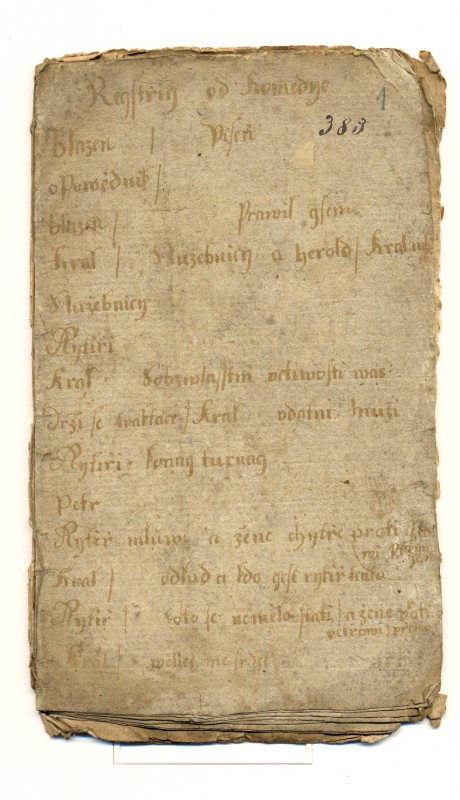 Regstřig od Komedye 1
383
Blazen / Piseň
oPowědnik /
blazen / Prawil gsem
Kral / Služebnicy a herold / Kral
Služebnicy
Rytiři
Kral Obzwlasstni poctiwosti was
drži se traktacy / Kral udatni muži
Rytiři konag turnag
Petr
Rytiř mluwi a žene chytře proti
Kral / odkud a kdo gest rytiř tento
Rytiř / toto se nemělo stati / a žene proti
petrowi /
Kral / welice me srdce